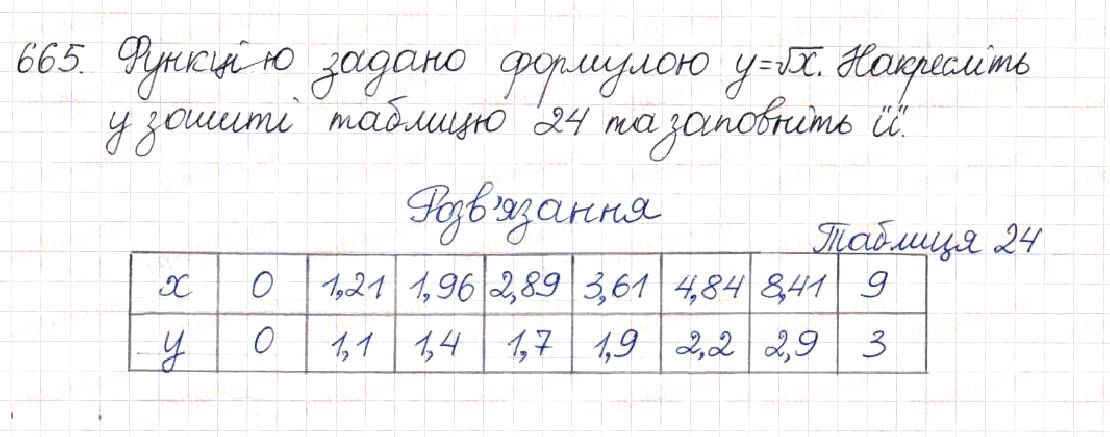 665. Функцію задано формулою y=√x. Накресліть
у зошиті таблицю 24 та заповніть її.
Розв'язання
Таблиця 24
x 0 1,21 1,96 2,89 3,61 4,84 8,41 9
y 0 1,1 1,4 1,7 1,9 2,2 2,9 3